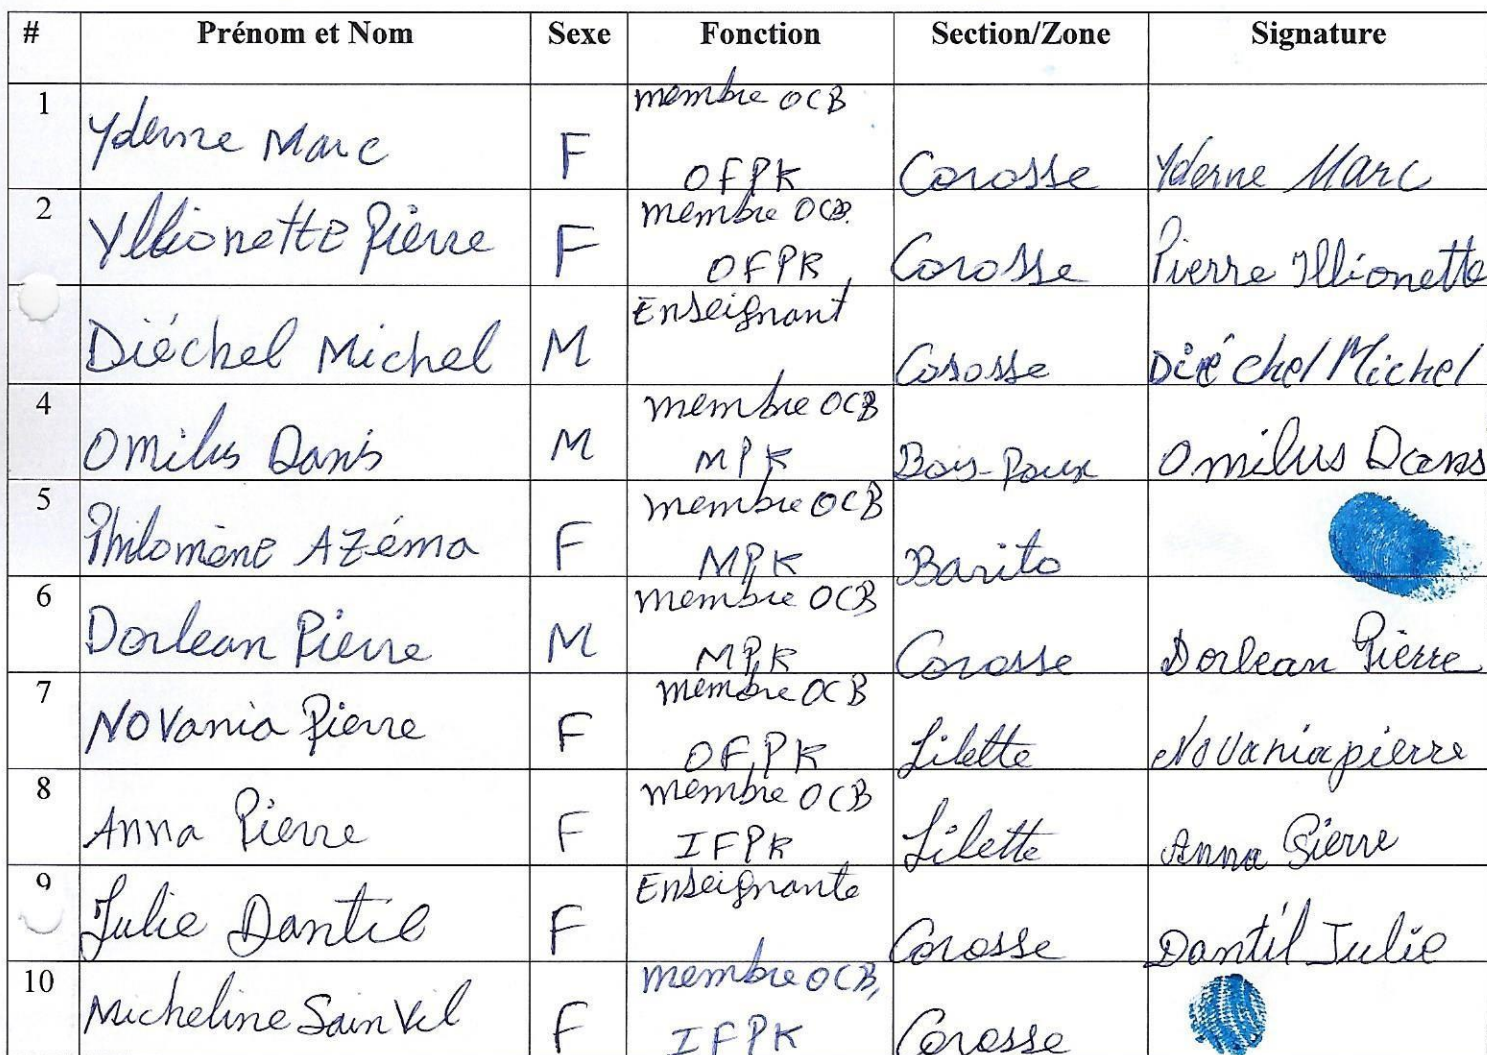 # Prénom et Nom Sexe Fonction Section/Zone Signature
1 Yderne Marc F membre OCB OFPK Corosse Yderne Marc
2 Yllionette Pierre F membre OCB. OFPK Corosse Pierre Illionette
Diéchel Michel M Enseignant Corosse Diéchel Michel
4 Omilus Danis M membre OCB MPK Bois-Poux Omilus Danis
5 Philomène Azéma F membre OCB MPK Barito
6 Dorlean Pierre M membre OCB MPK Corosse Dorlean Pierre
7 Novania Pierre F membre OCB OFPK Lilette Novania pierre
8 Anna Pierre F membre OCB IFPK Lilette Anna Pierre
9 Julie Dantil F Enseignante Corosse Dantil Julie
10 Micheline SainVil F membre OCB, IFPK Corosse